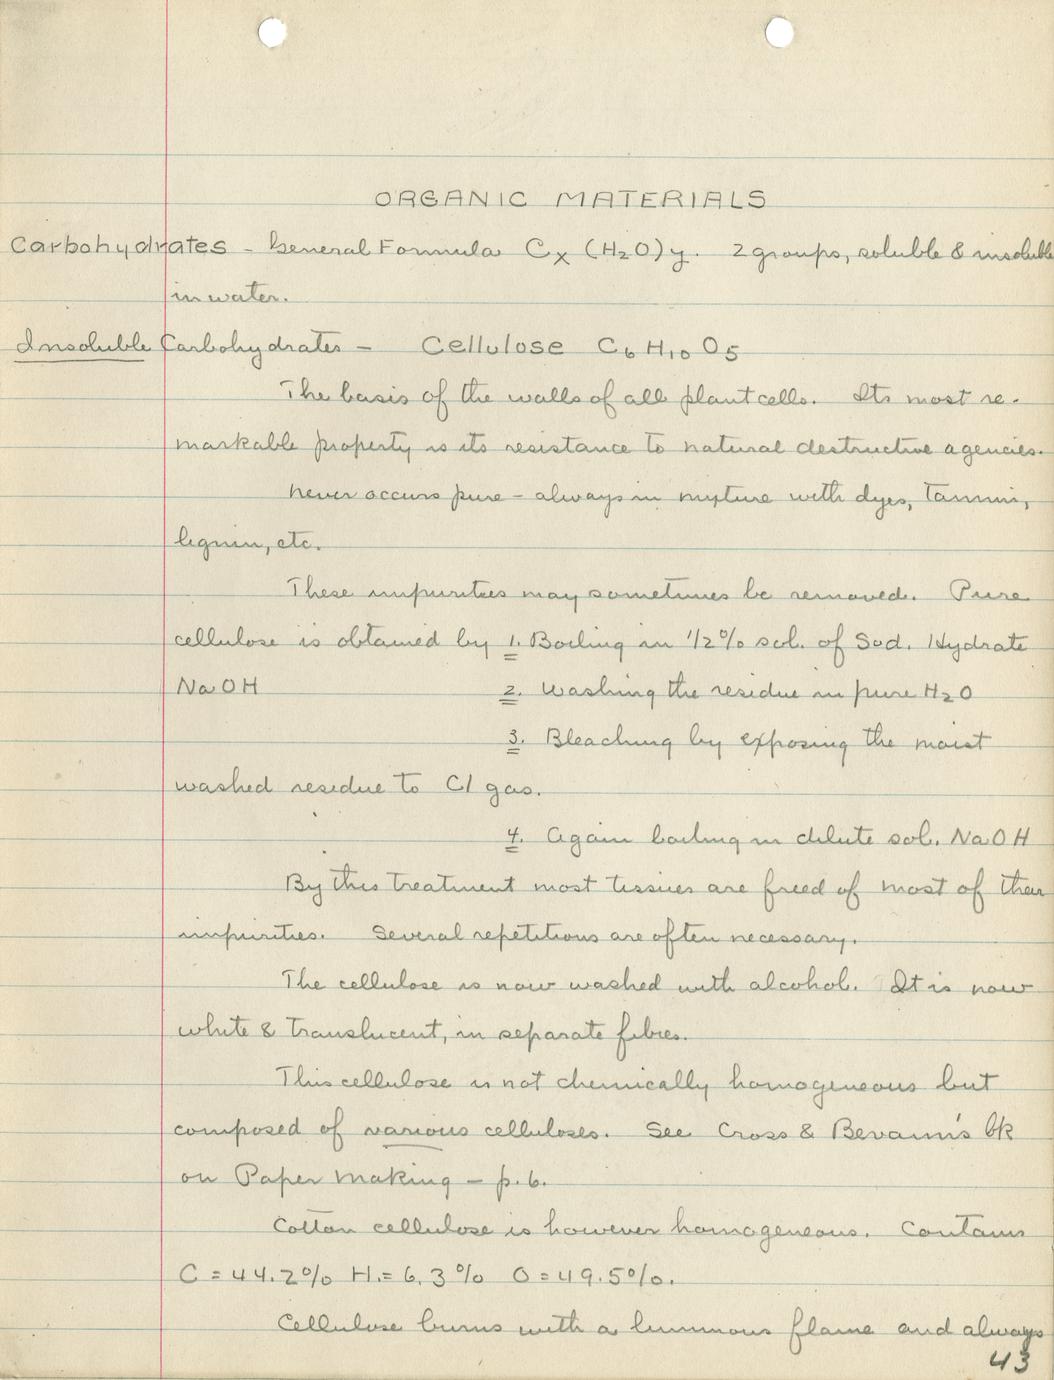 ORGANIC MATERIALS
Carbohydrates - General Formula Cx (H2O)y. 2 groups, soluble & insoluble
in water.
Insoluble Carbohydrates - Cellulose C6 H10 O5
The basis of the walls of all plant cells. Its most re-
markable property is its resistance to natural destructive agencies.
Never occurs pure - always in mixture with dyes, Tannin,
lignin, etc.
These impurities may sometimes be removed. Pure
cellulose is obtained by 1. Boiling in 1/2% sol. of Sod. Hydrate
NaOH 2. Washing the residue in pure H2O
3. Bleaching by exposing the moist
washed residue to Cl gas.
4. Again boiling in dilute sol. NaOH
By this treatment most tissues are freed of most of their
impurities. Several repetitions are often necessary.
The cellulose is now washed with alcohol. It is now
white & translucent, in separate fibres.
This cellulose is not chemically homogeneous but
composed of various celluloses. See Cross & Bevann's bk
on Paper Making - p. 6.
Cotton cellulose is however homogeneous. Contains
C = 44.2% H. = 6.3% O = 49.5%.
Cellulose burns with a luminous flame and always
43